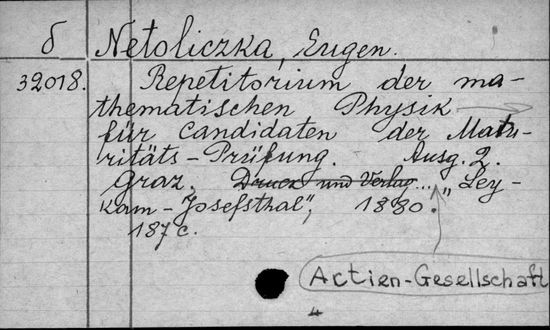 δ Netoliczka, Eugen.
32018. Repetitorium der ma-
thematischen Physik
für Candidaten der Matu-
ritäts-Prüfung. Ausg. 2.
Graz. Druck und Verlag ... „Ley-
kam-Josefsthal", 1880.
187 c.
Actien-Gesellschaft
4